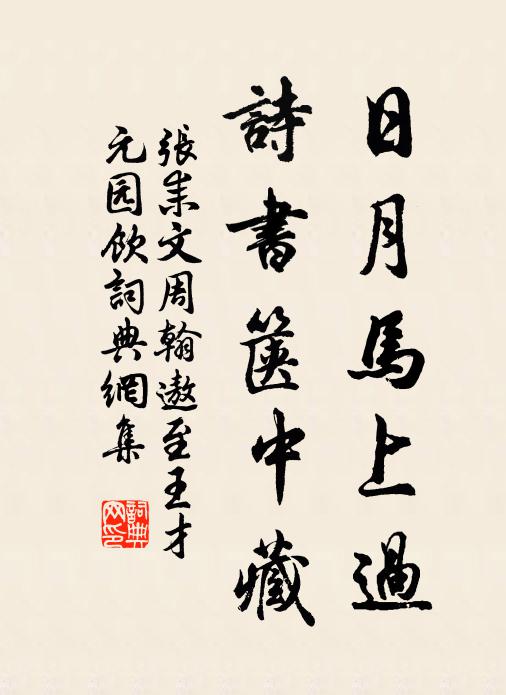 日月馬上過
詩書篋中藏
張耒文周翰遨至王才
元园飲詞典網集
詞典
网印